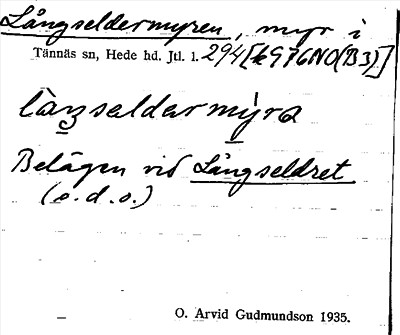 Långseldermyren, myr i
Tännäs sn, Hede hd. Jtl. l. 294 [k976NO(B3)]
làŋseldarmỳra
Belägen vid Långseldret
(o.d.o.)
O. Arvid Gudmundson 1935.